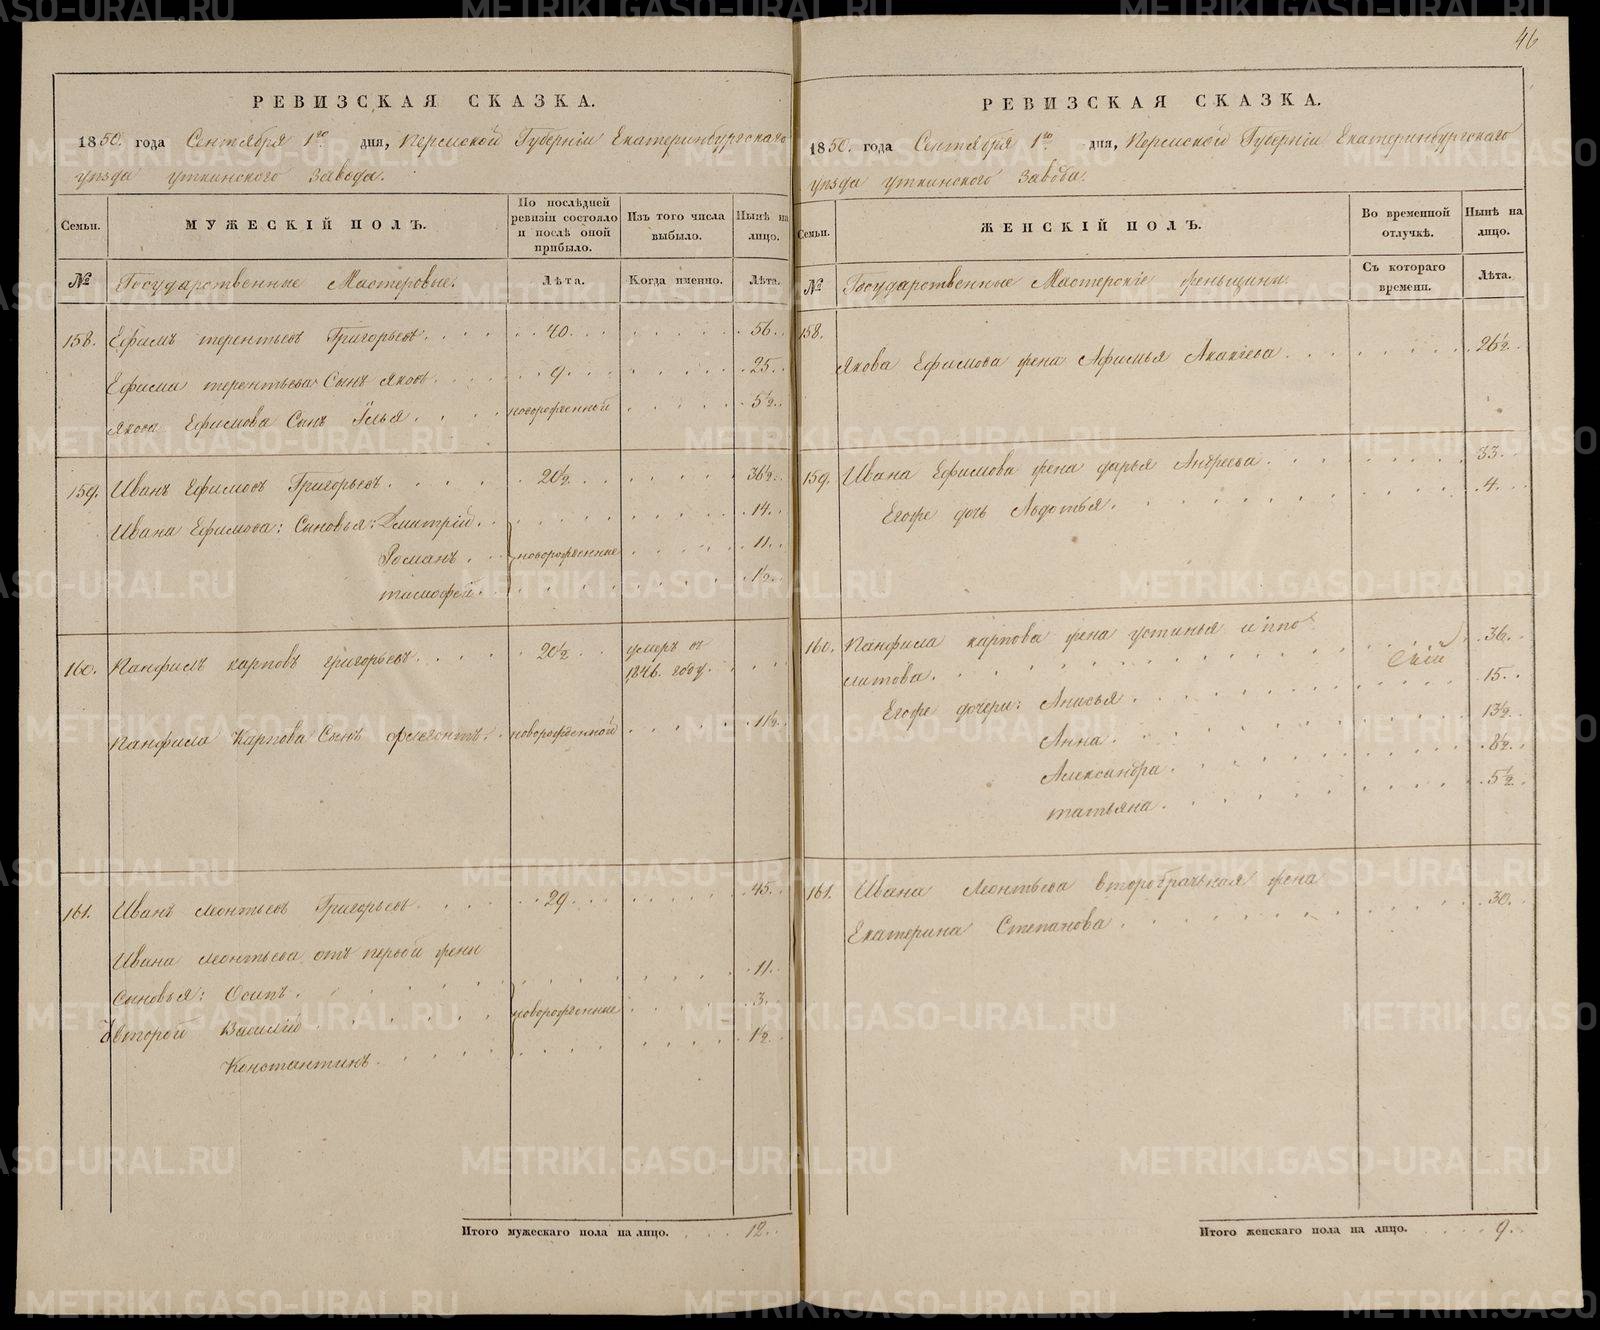 46
РЕВИЗСКАЯ СКАЗКА.
1850. года Сентября 1го дня, Пермской Губерніи Екатеринбургскаго
уѣзда уткинского Завода.
Семьи.
МУЖЕСКІЙ ПОЛЪ.
По послѣдней ревизіи состояло и послѣ оной прибыло.
Изъ того числа выбыло.
Нынѣ на лицо.
№
Государственные Мастеровые.
Лѣта.
Когда именно.
Лѣта.
158. Ефимъ терентьевъ Григорьевъ. 40. 56.
Ефима терентьева Сынъ Яковъ. 9. 25.
Якова Ефимова Сынъ Илья. новорожденной 5½.
159. Иванъ Ефимовъ Григорьевъ. 20½. 36½.
Ивана Ефимова: Сыновья: Дмитрій. 14.
Романъ. новорожденные 11.
тимофей. 1½.
160. Панфилъ карповъ григорьевъ. 20½. умеръ въ
1846. году.
Панфила Карпова Сынъ флегонтъ. новорожденной 11½.
161. Иванъ леонтьевъ Григорьевъ. 29. 45.
Ивана леонтьева отъ первой жены
Сыновья: Осипъ. 11.
второй Василій новорожденные 3.
Константинъ. 1½.
Итого мужескаго пола на лицо. 12.
РЕВИЗСКАЯ СКАЗКА.
1850. года Сентября 1го дня, Пермской Губерніи Екатеринбургскаго
уѣзда уткинского Завода.
Семьи.
ЖЕНСКІЙ ПОЛЪ.
Во временной отлучкѣ.
Нынѣ на лицо.
№
Государственные Мастерскіе женщины.
Съ котораго времени.
Лѣта.
158.
Якова Ефимова жена Афимья Акакіева. 26½.
159. Ивана Ефимова жена дарья Андреева. 33.
Егоже дочь Авдотья. 4.
160. Панфила карпова жена устинья иппо 36.
литова.
Егоже дочери: Анисья. 15.
Анна. 13½.
Александра. 8½.
татьяна. 5½.
161. Ивана Леонтьева второбрачная жена
Екатерина Степанова. 30.
Итого женскаго пола на лицо. 9.
METRIKI.GASO-URAL.RU